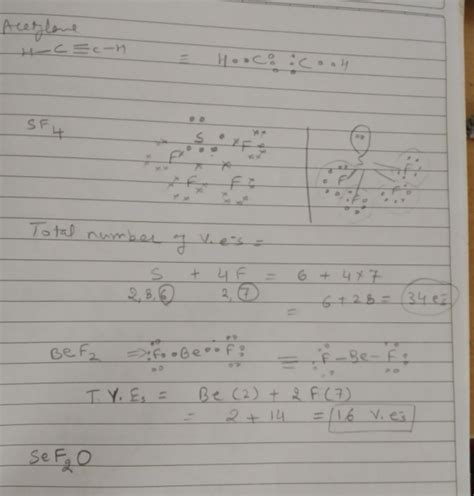 Acetylene
H-C≡C-H = H••C⋮⋮C••H
SF4
S F F F F | F F F F
Total number of V.e's =
S + 4F = 6 + 4×7
2,8,6 2,7 = 6+28 = 34 e's
BeF2 ⇒ :F••Be••F: ≡ :F-Be-F:
T.V.Es = Be(2) + 2F(7)
= 2 + 14 = 16 V.e's
SeF2O